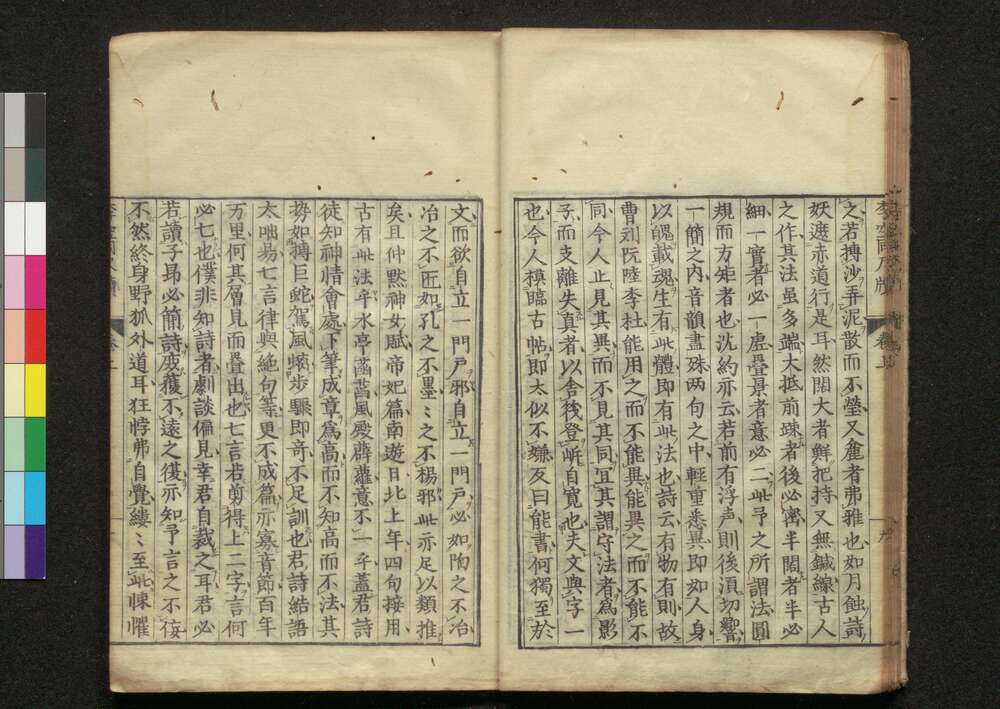 之若摶沙弄泥散而不瑩又麁者弗雅也如月蝕詩
妖遮赤道行是耳然闊大者鮮把持又無鍼線古人
之作其法虽多端大抵前踈者後必宻半闊者半必
細一實者必一虚疊景者意必二此予之所謂法圓
規而方矩者也沈約亦云若前有浮声則後湏切響
一簡之内音韻盡殊两句之中輕重悉異即如人身
以魄載魂生有此體即有此法也詩云有物有則故
曹刘阮陸李杜能用之而不能異能異之而不能不
同今人止見其異而不見其同宜其謂守法者為影
子而支離失真者以舍筏登岸自寛也夫文與字一
也今人模臨古帖即太似不嫌反曰能書何獨至於
文而欲自立一門戸邪自立一門戸必如陶之不冶
冶之不匠如孔之不墨〻之不楊邪此亦足以類推
矣且仲黙神女賦帝妃篇南遊日北上年四句接用
古有此法乎水亭菡萏風殿薜蘿意不一乎盖君詩
徒知神情會處下筆成章為高而不知高而不法其
勢如摶巨蛇駕風螭歩驟即奇不足訓也君詩結語
太咄易七言律與絶句等更不成篇亦寡音節百年
万里何其層見而疊出也七言若剪得上二字言何
必七也僕非知詩者劇談偏見幸君自裁之耳君必
若讀子昂必簡詩庾蒦不遠之復亦知予言之不佞
不然終身野狐外道耳狂悖弗自覺縷〻至此悚懼